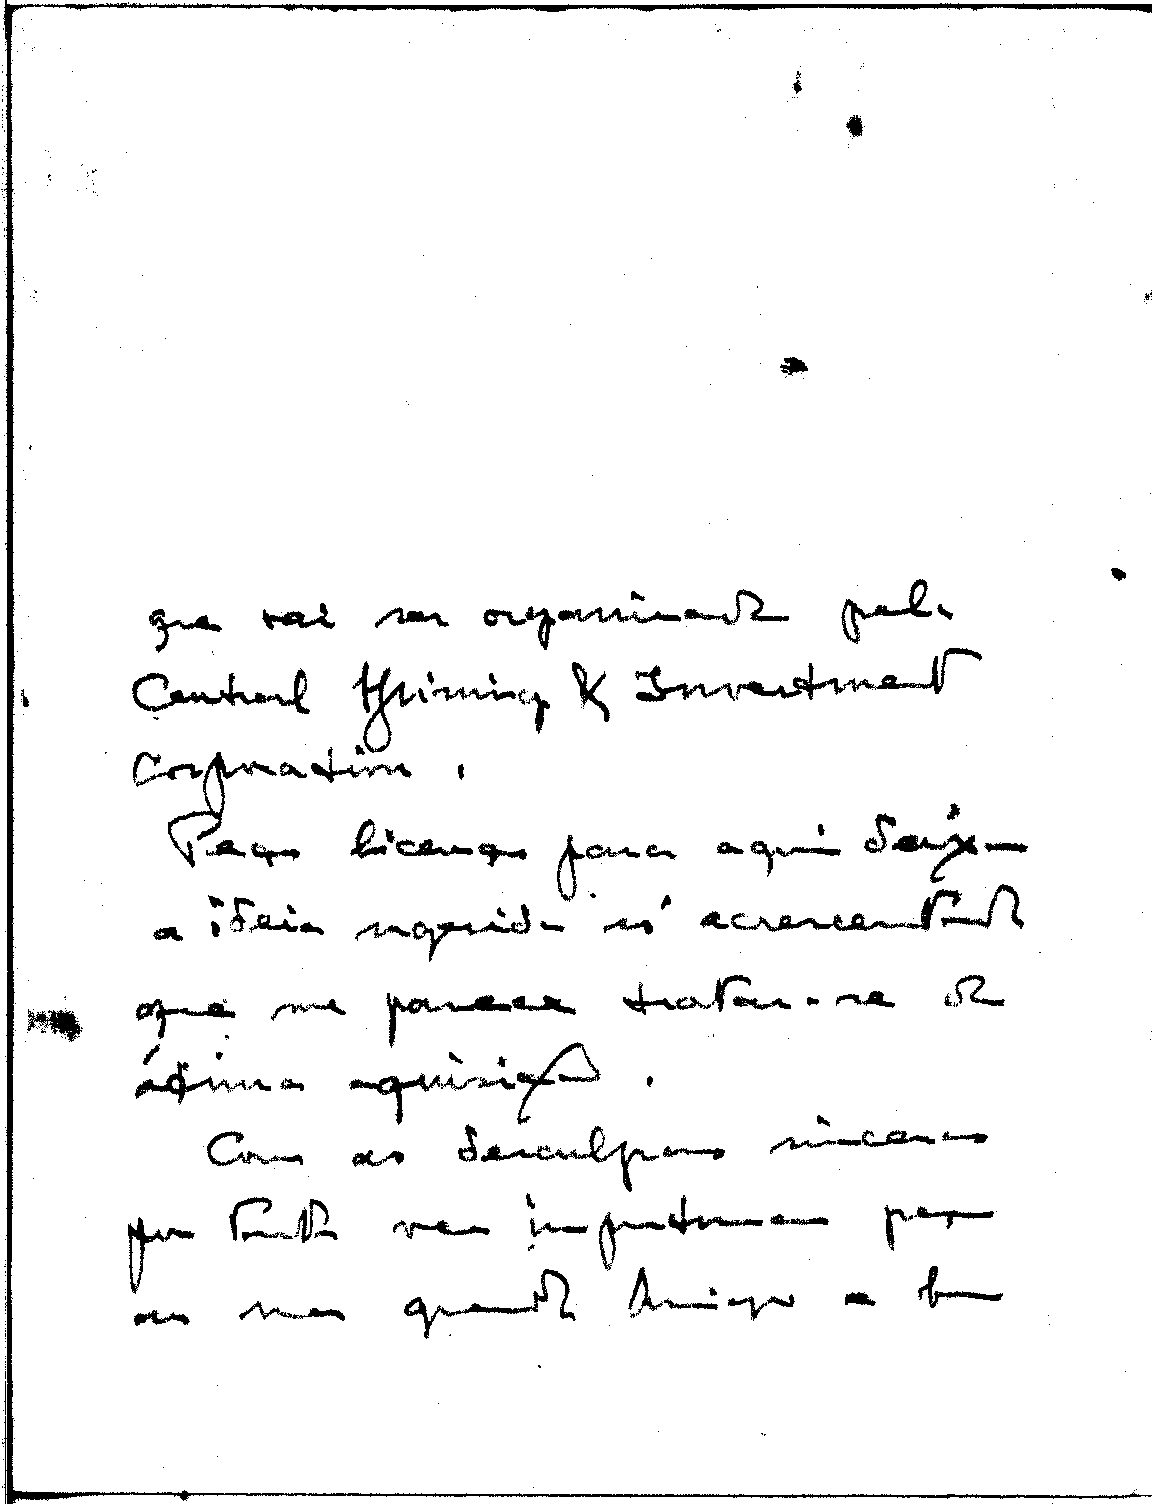 que vai ser organizada pela
Central Mining & Investment
Corporation.
Peço licença para aqui deixar
a ideia sugerida só acrescentando
que me parece tratar-se de
óptima aquisição.
Com as desculpas sinceras
por tanto vez importunar peço
ao meu grande Amigo a bon